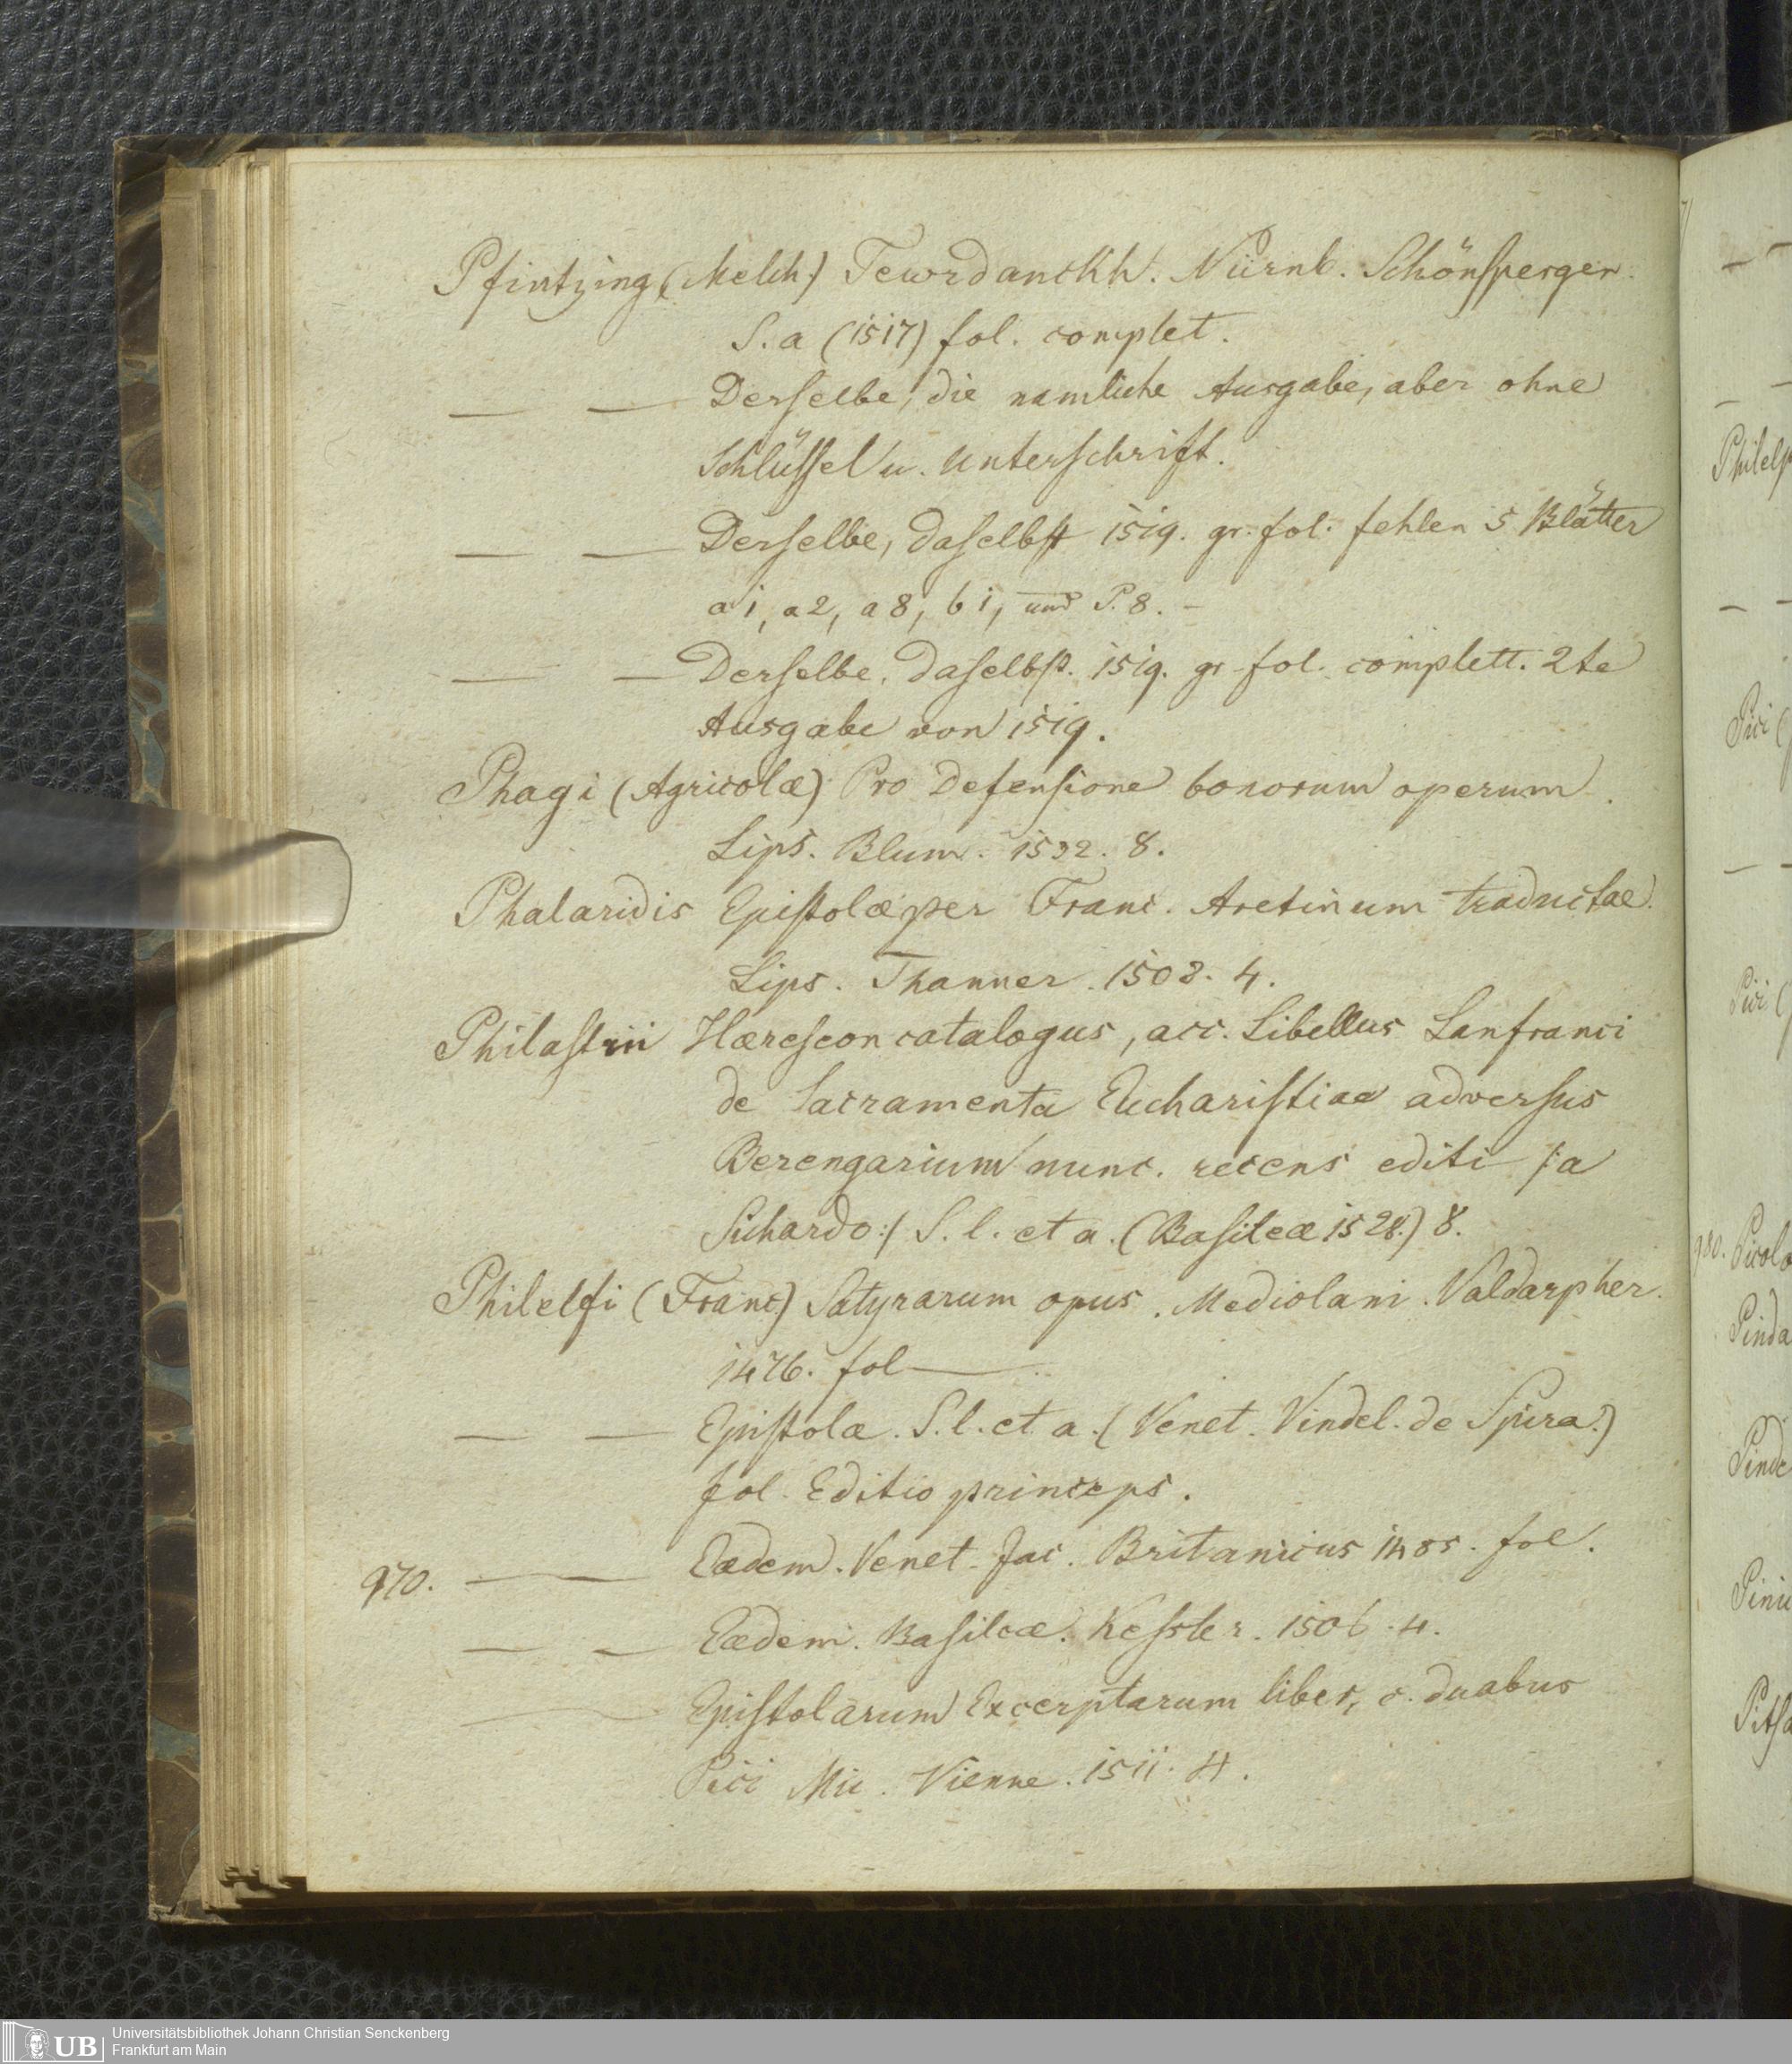 Pfintzing (Melch) Tewrdanckh. Nürnb. Schönsperger.
S. a (1517) fol. complet.
— — Derselbe, die namliche Ausgabe, aber ohne
Schlüssel u. Unterschrift.
— — Derselbe, daselbst 1519. gr. fol. fehlen 5 Blätter
a1, a2, a8, b1, und P. 8. –
— — Derselbe, daselbst. 1519. gr fol. complett. 2te
Ausgabe von 1519.
Phagi (Agricolæ) Pro Defensione bonorum operum.
Lips. Blum. 1532. 8.
Phalaridis Epistolæ per Franc. Aretinum traductae.
Lips. Thanner. 1508. 4.
Philastrii Hæreseon catalogus, acc. Libellus Lanfranci
de Sacramenta Eucharistiae adversus
Berengarium nunc. recens editi /:a
Sichardo:/ S. l. et a. (Basileæ 1528.) 8.
Philelfi (Franc) Satyrarum opus. Mediolani. Valdarpher.
1476. fol —
— — Epistolæ. S. l. et a. (Venet. Vindel. de Spira.)
fol. Editio princeps.
970. — — Eædem. Venet. Jac. Britanicus 1485. fol.
— — Eædem. Basileæ. Kessler. 1506. 4.
— Epistolarum Excerptarum liber, c. duabus
Pici Mir. Vienne. 1511. 4.
Philelp
Pici (
Pici (
980. Picolo
Pinda
Pinda
Pinic
Pitsa
UB
Universitätsbibliothek Johann Christian Senckenberg
Frankfurt am Main